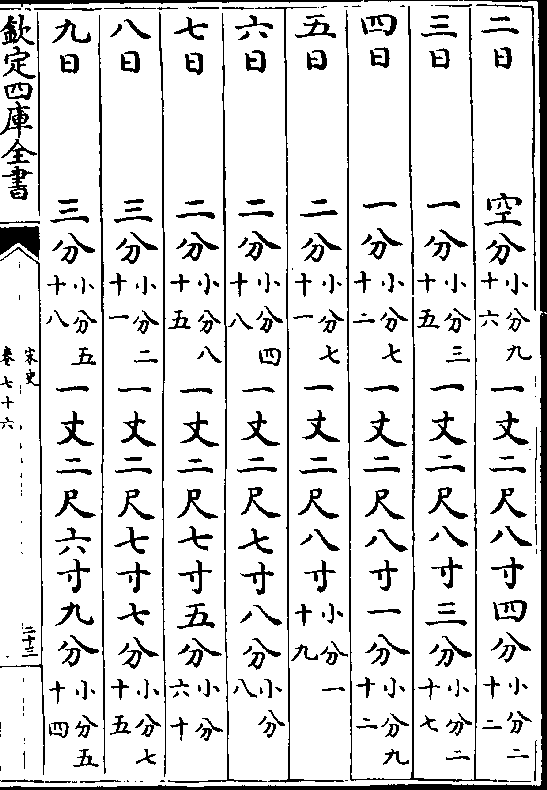 二日 空分小分九十六 一丈二尺八寸四分小分二十二
三日 一分小分三十五 一丈二尺八寸三分小分二十七
四日 一分小分七十二 一丈二尺八寸一分小分九十二
五日 二分小分七十一 一丈二尺八寸小分一十九
六日 二分小分四十八 一丈二尺七寸八分小分八
七日 二分小分八十五 一丈二尺七寸五分小分六十
八日 三分小分二十一 一丈二尺七寸七分小分七十五
九日 三分小分五十八 一丈二尺六寸九分小分五十四
欽定四庫全書
宋史
卷七十六
二十三